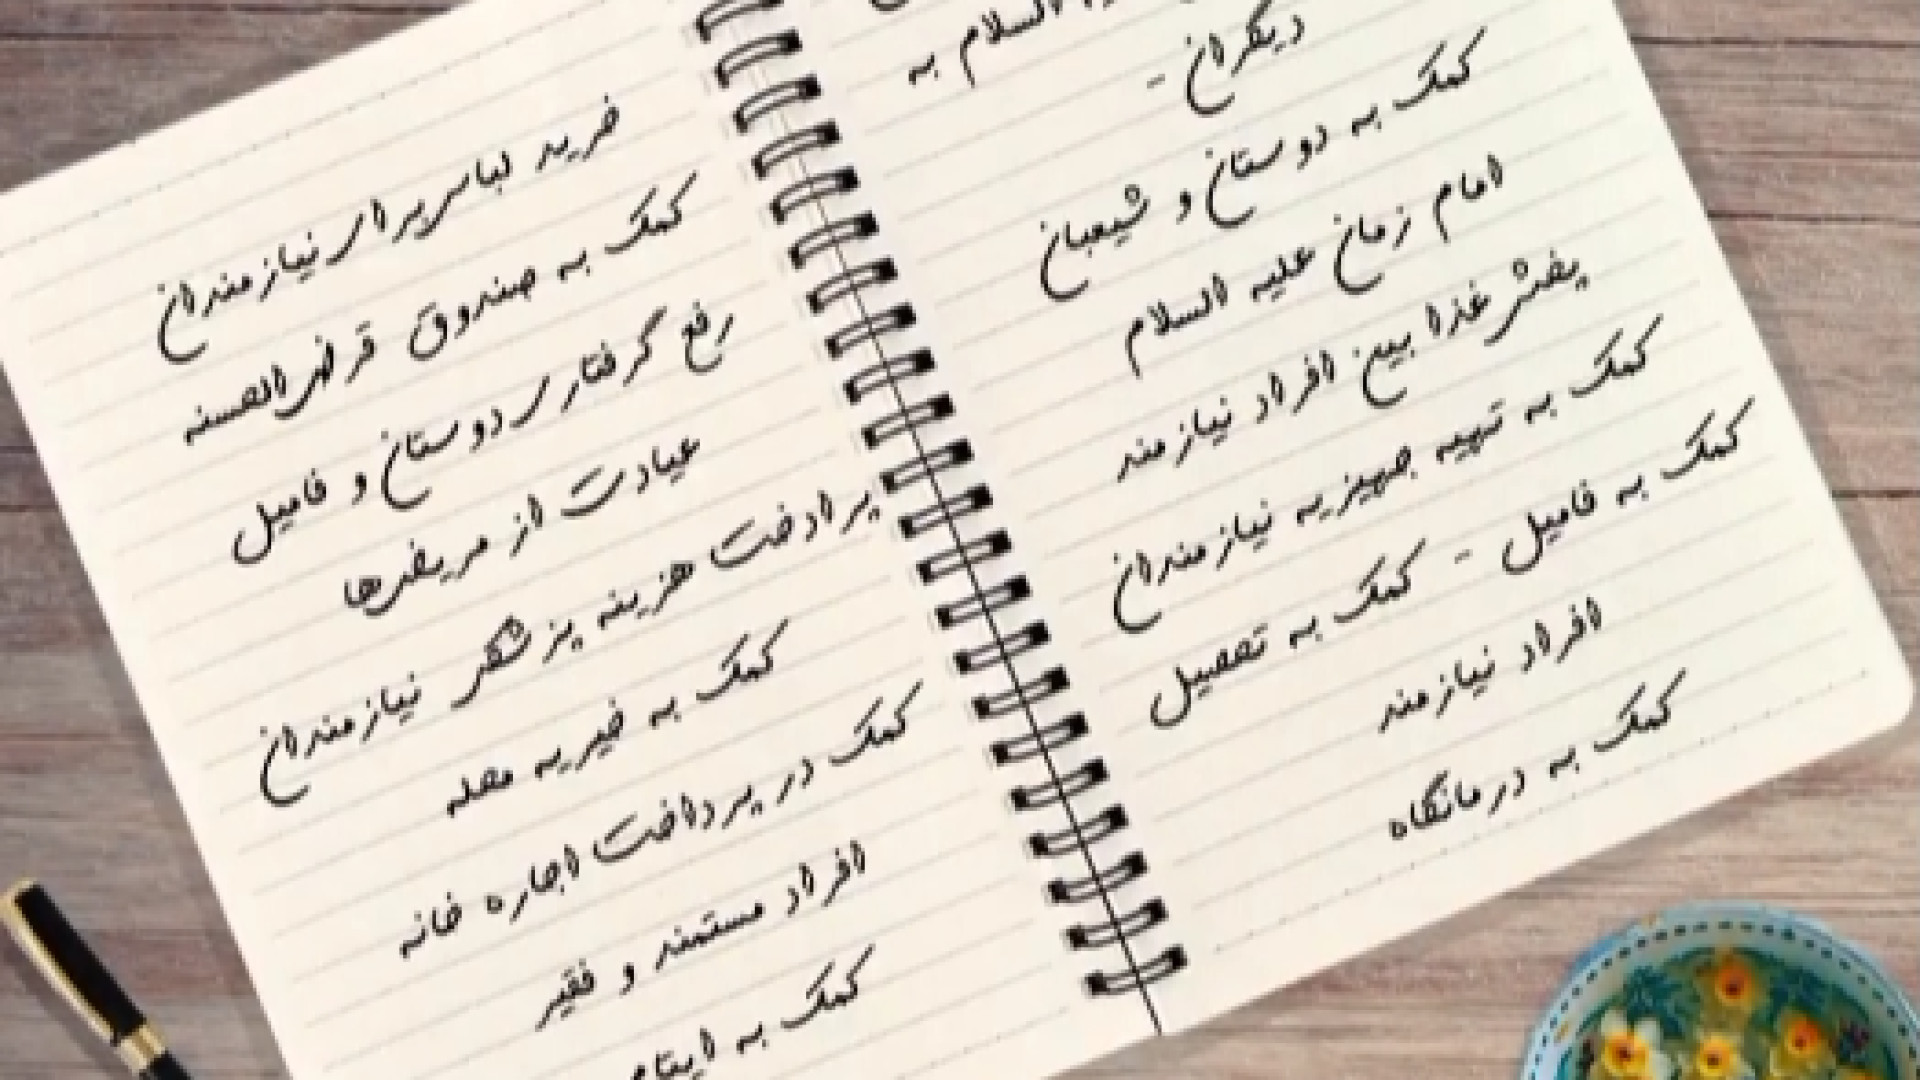 السلام به
دیگران -
کمک به دوستان و شیعیان
امام زمان علیه السلام
پخش غذا بین افراد نیازمند
کمک به تهیه جهیزیه نیازمندان
کمک به فامیل - کمک به تحصیل
افراد نیازمند
کمک به درمانگاه
خرید لباس برای نیازمندان
کمک به صندوق قرض الحسنه
رفع گرفتاری دوستان و فامیل
عیادت از مریض‌ها
پرادخت هزینه پزشکی نیازمندان
کمک به خیریه محله
کمک در پرداخت اجاره خانه
افراد مستمند و فقیر
کمک به ایتام